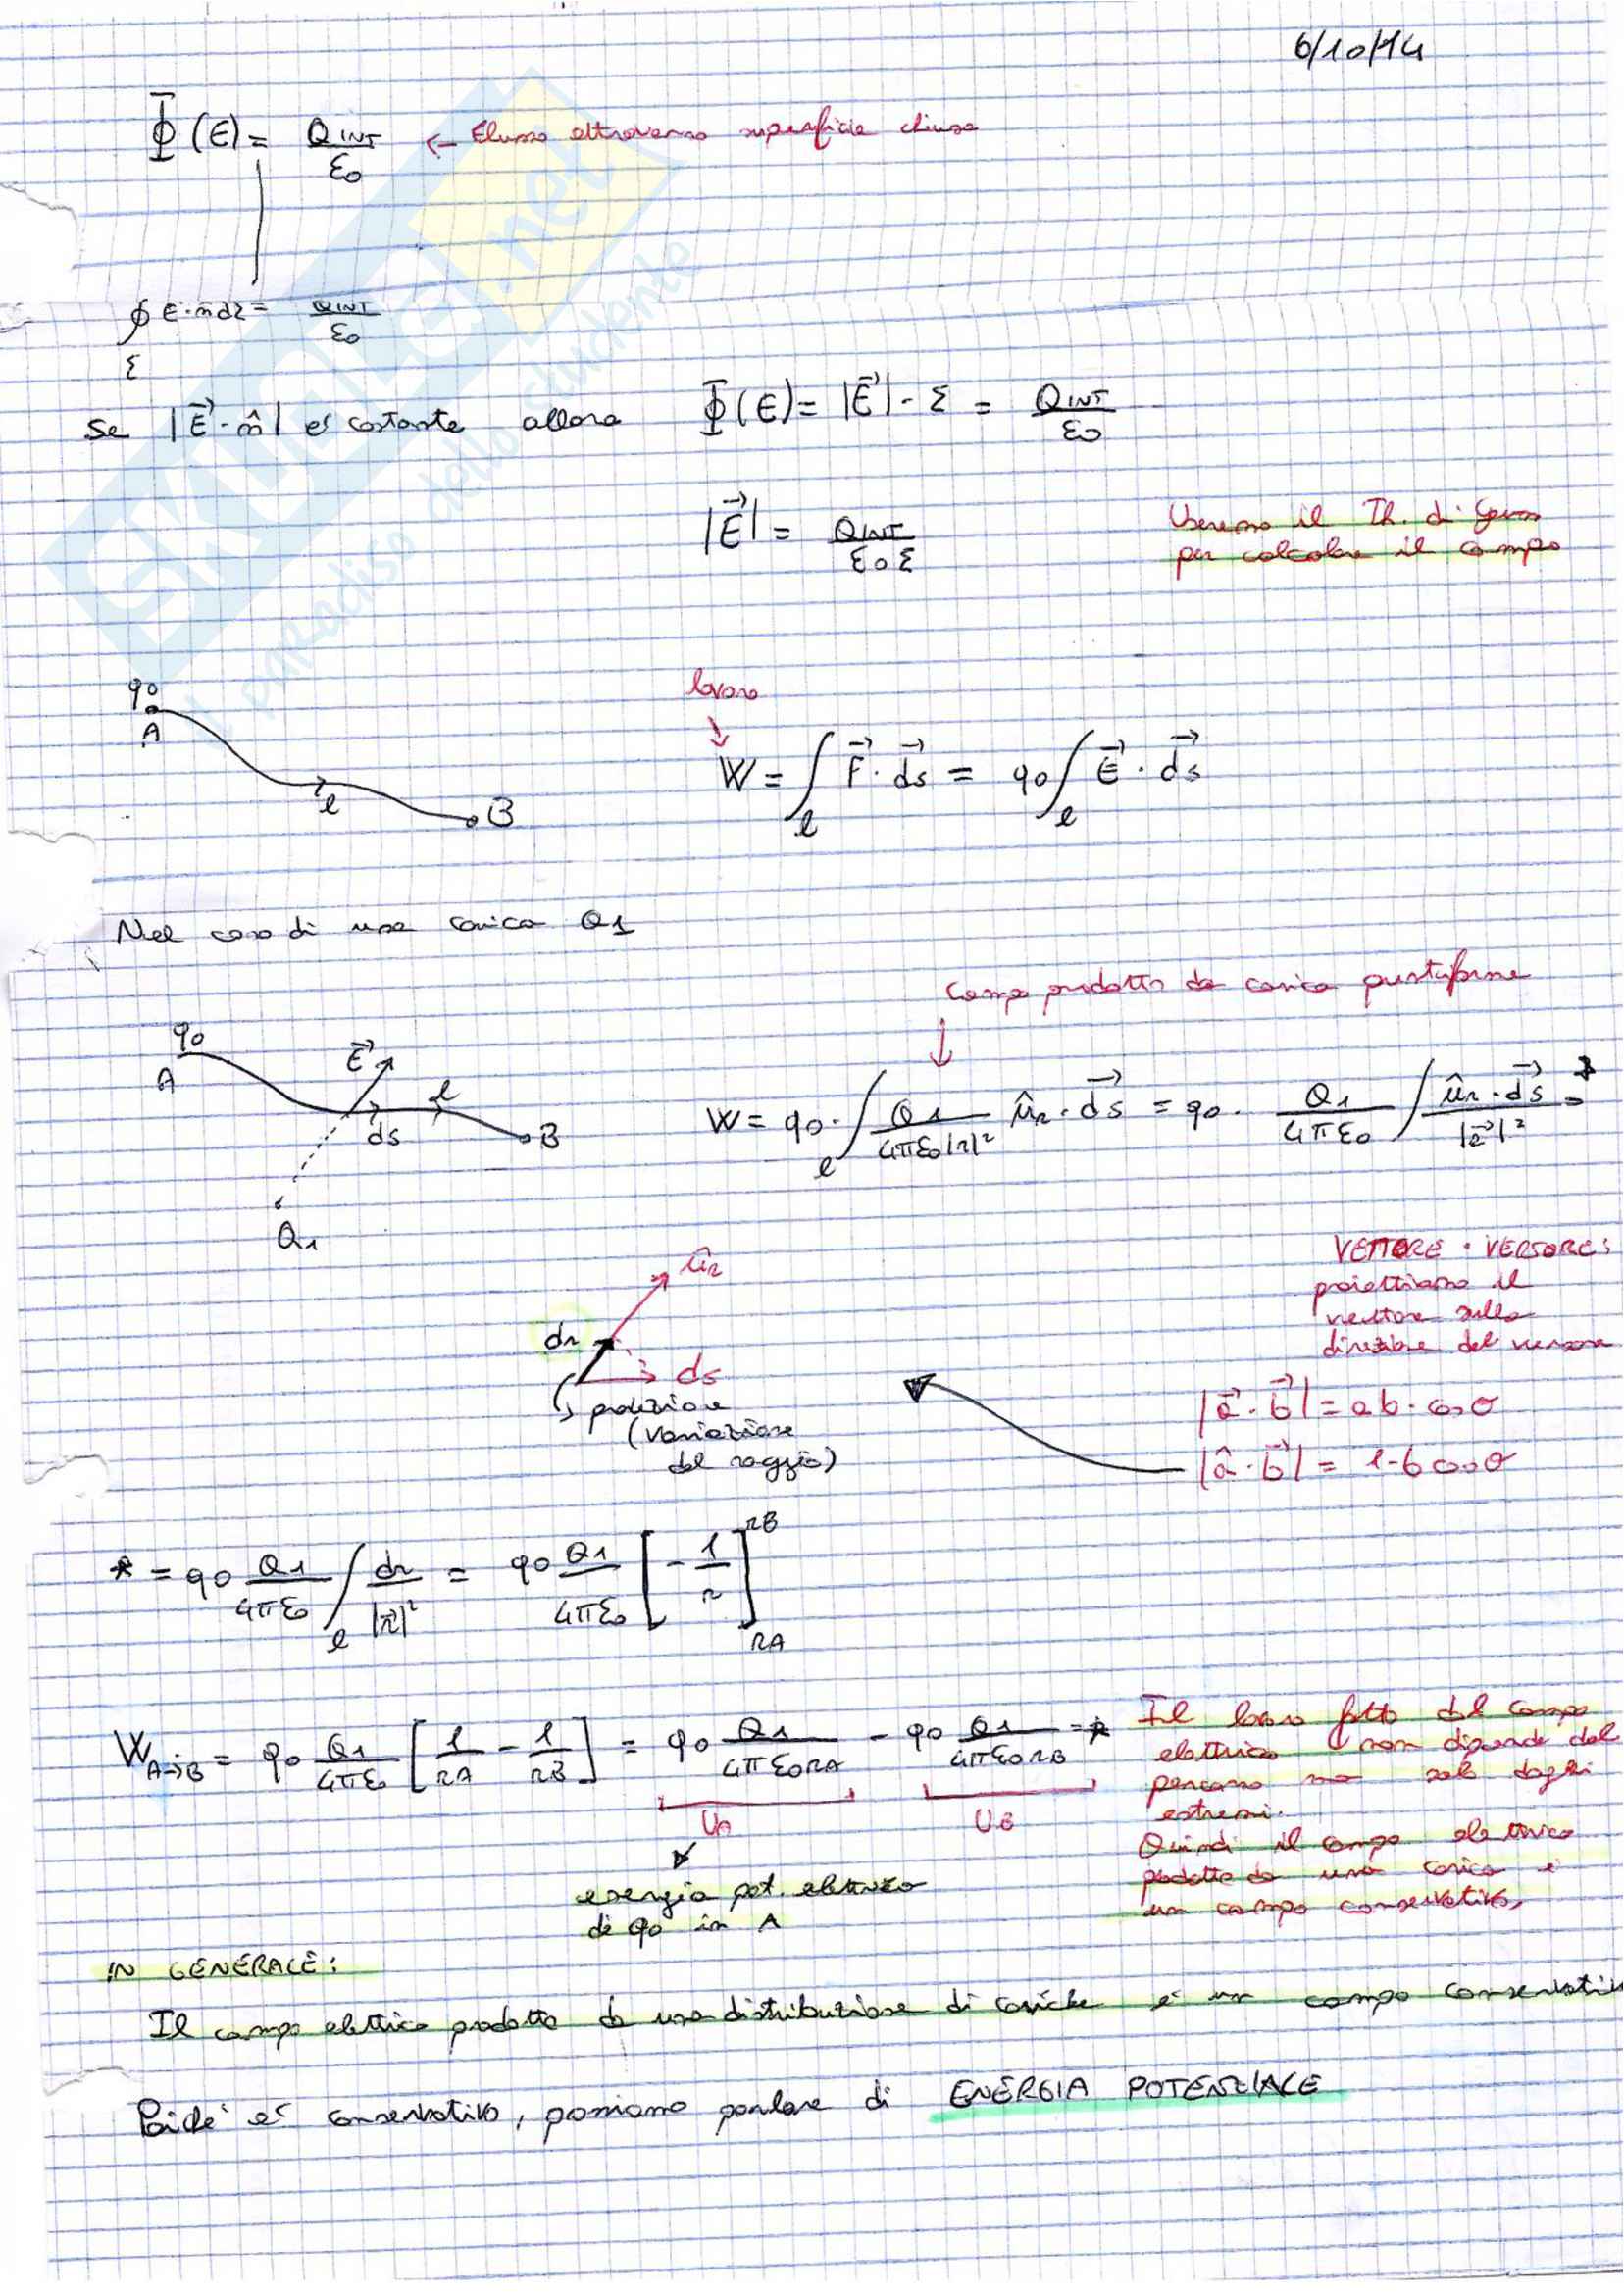 6/10/14
Φ(E) = QINT/ε0 ← Flusso attraverso superficie chiusa
∮Σ E·n̂ dΣ = QINT/ε0
Se |E⃗·n̂| e' costante allora Φ(E) = |E⃗|·Σ = QINT/ε0
|E⃗| = QINT/ε0Σ
Useremo il Th. di Gauss
per calcolare il campo
q0
A
l
B
lavoro
W = ∫l F⃗·ds⃗ = q0 ∫l E⃗·ds⃗
Nel caso di una carica Q1
Campo prodotto da carica puntiforme
q0
A
E⃗
l
ds
B
Q1
W = q0·∫l Q1/4πε0|r|² ûr·ds⃗ = q0· Q1/4πε0 ∫ ûr·ds⃗/|r⃗|² = *
VETTORE · VERSORE:
proiettiamo il
vettore sulla
direzione del versore
ûr
dr
ds
↳ proiezione
(variazione
del raggio)
|a⃗·b⃗| = ab·cosθ
|â·b⃗| = 1·b cosθ
* = q0 Q1/4πε0 ∫l dr/|r⃗|² = q0 Q1/4πε0 [-1/r]rA^rB
WA→B = q0 Q1/4πε0 [1/rA - 1/rB] = q0 Q1/4πε0rA - q0 Q1/4πε0rB = *
UA
UB
energia pot. elettrica
di q0 in A
Il lavoro fatto dal campo
elettrico non dipende dal
percorso ma solo dagli
estremi.
Quindi il campo elettrico
prodotto da una carica è
un campo conservativo,
IN GENERALE:
Il campo elettrico prodotto da una distribuzione di cariche e' un campo conservativ
Poiche' e' conservativo, possiamo parlare di ENERGIA POTENZIALE
SKUOLA.net
il paradiso dello studente